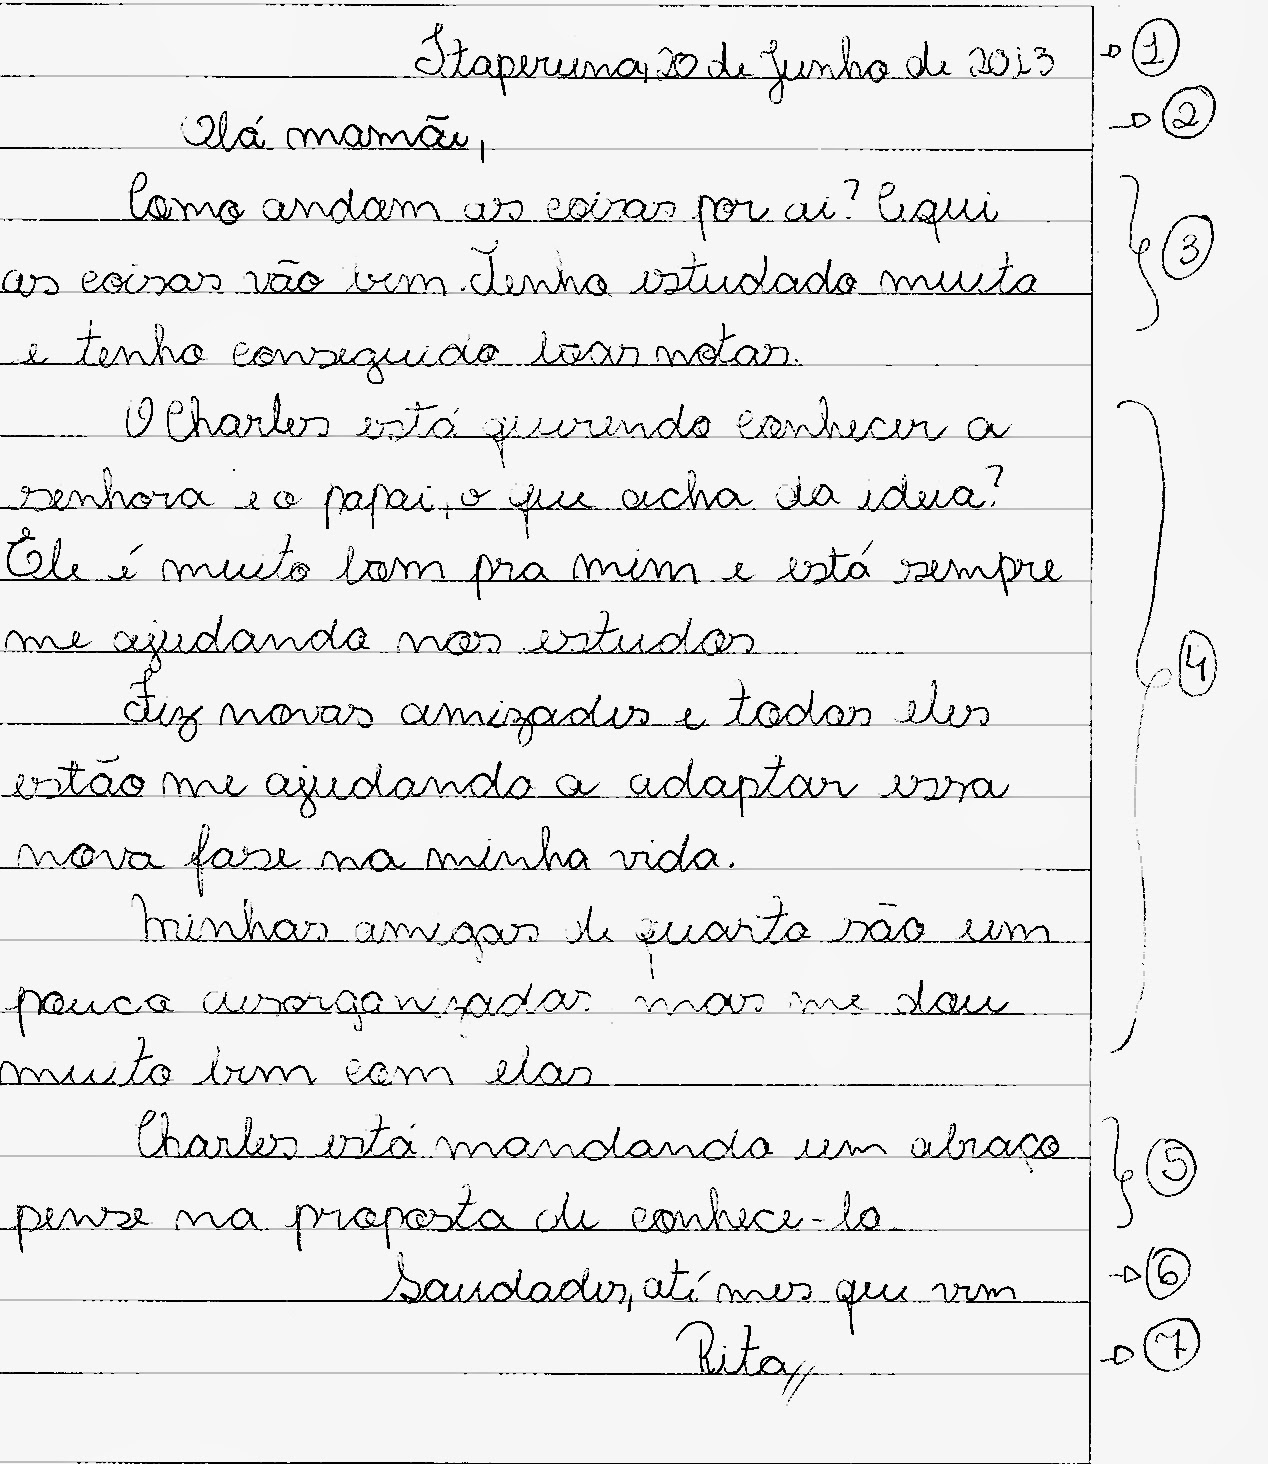 Itaperuna, 20 de Junho de 2013 → 1
Olá mamãe, → 2
Como andam as coisas por ai? Aqui
as coisas vão bem. Tenho estudado muito 3
e tenho conseguido boas notas.
O Charles está querendo conhecer a
senhora e o papai, o que acha da ideia?
Ele é muito bom pra mim e está sempre
me ajudando nos estudos
Fiz novas amizades e todos eles 4
estão me ajudando a adaptar essa
nova fase na minha vida.
Minhas amigas de quarto são um
pouco desorganizadas mas me dou
muito bem com elas
Charles está mandando um abraço 5
pense na proposta de conhece-lo
Saudades, até mes que vem → 6
Rita → 7